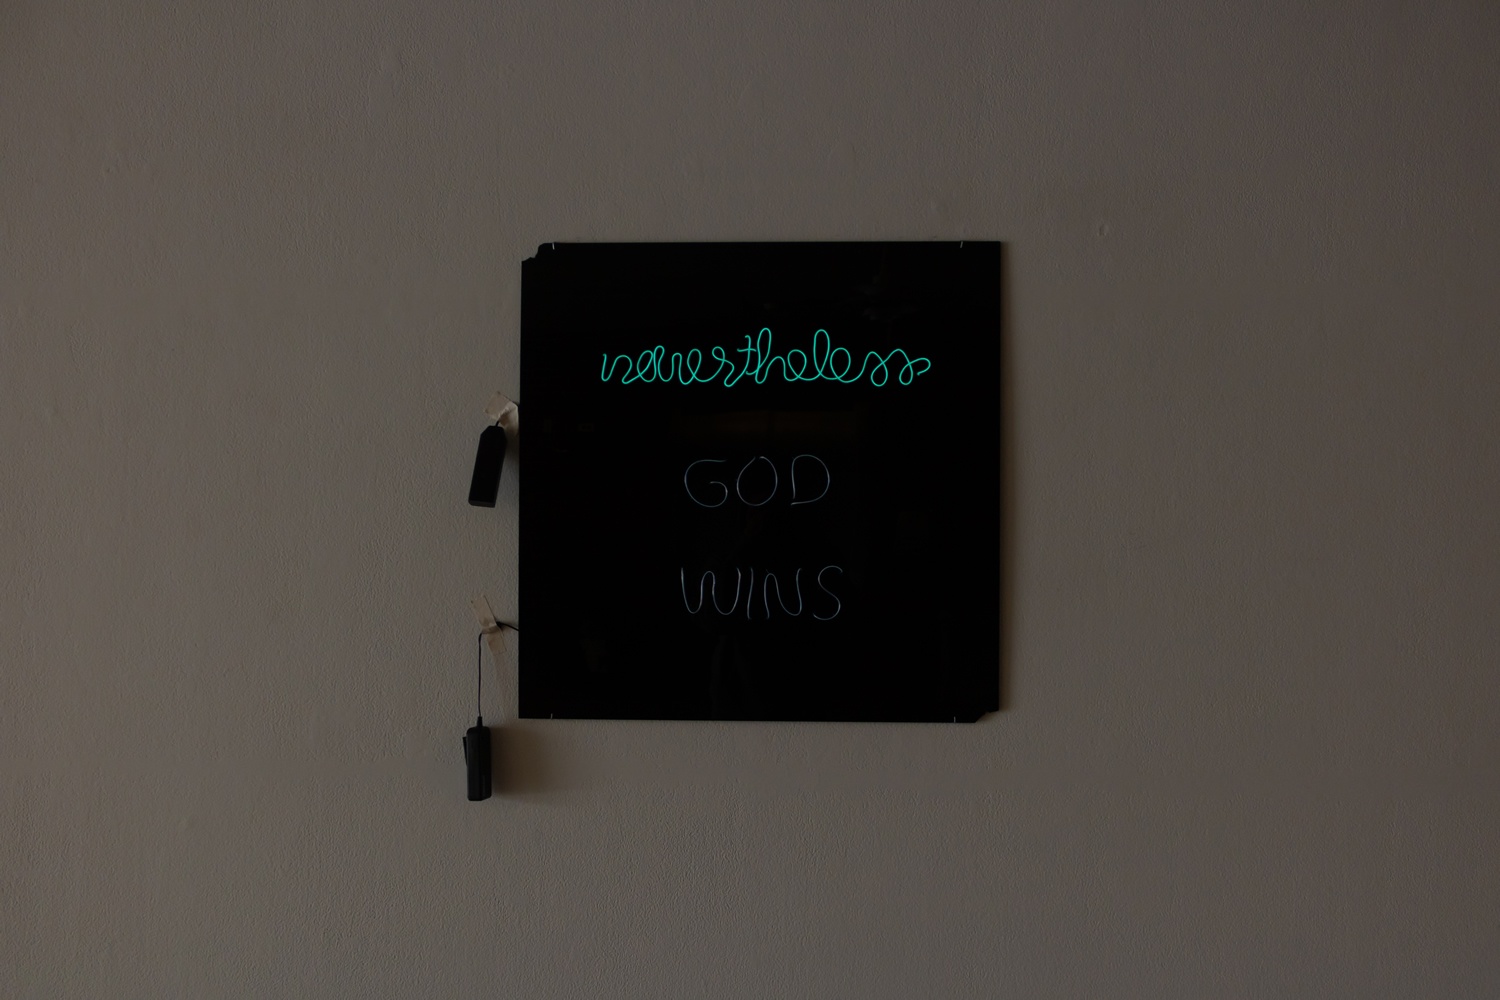 nevertheless
GOD
WINS